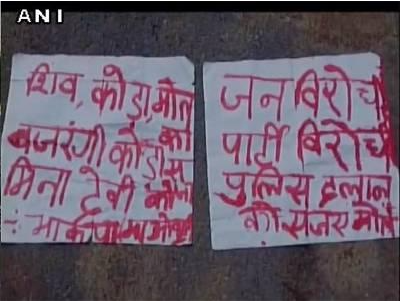 ANI
शिव, कोड़ा, मौत
बजरंगी कोड़ा
मिना देवी
जन विरोधी
पार्टी विरोधी
पुलिस दलाल
को सजाए मौत